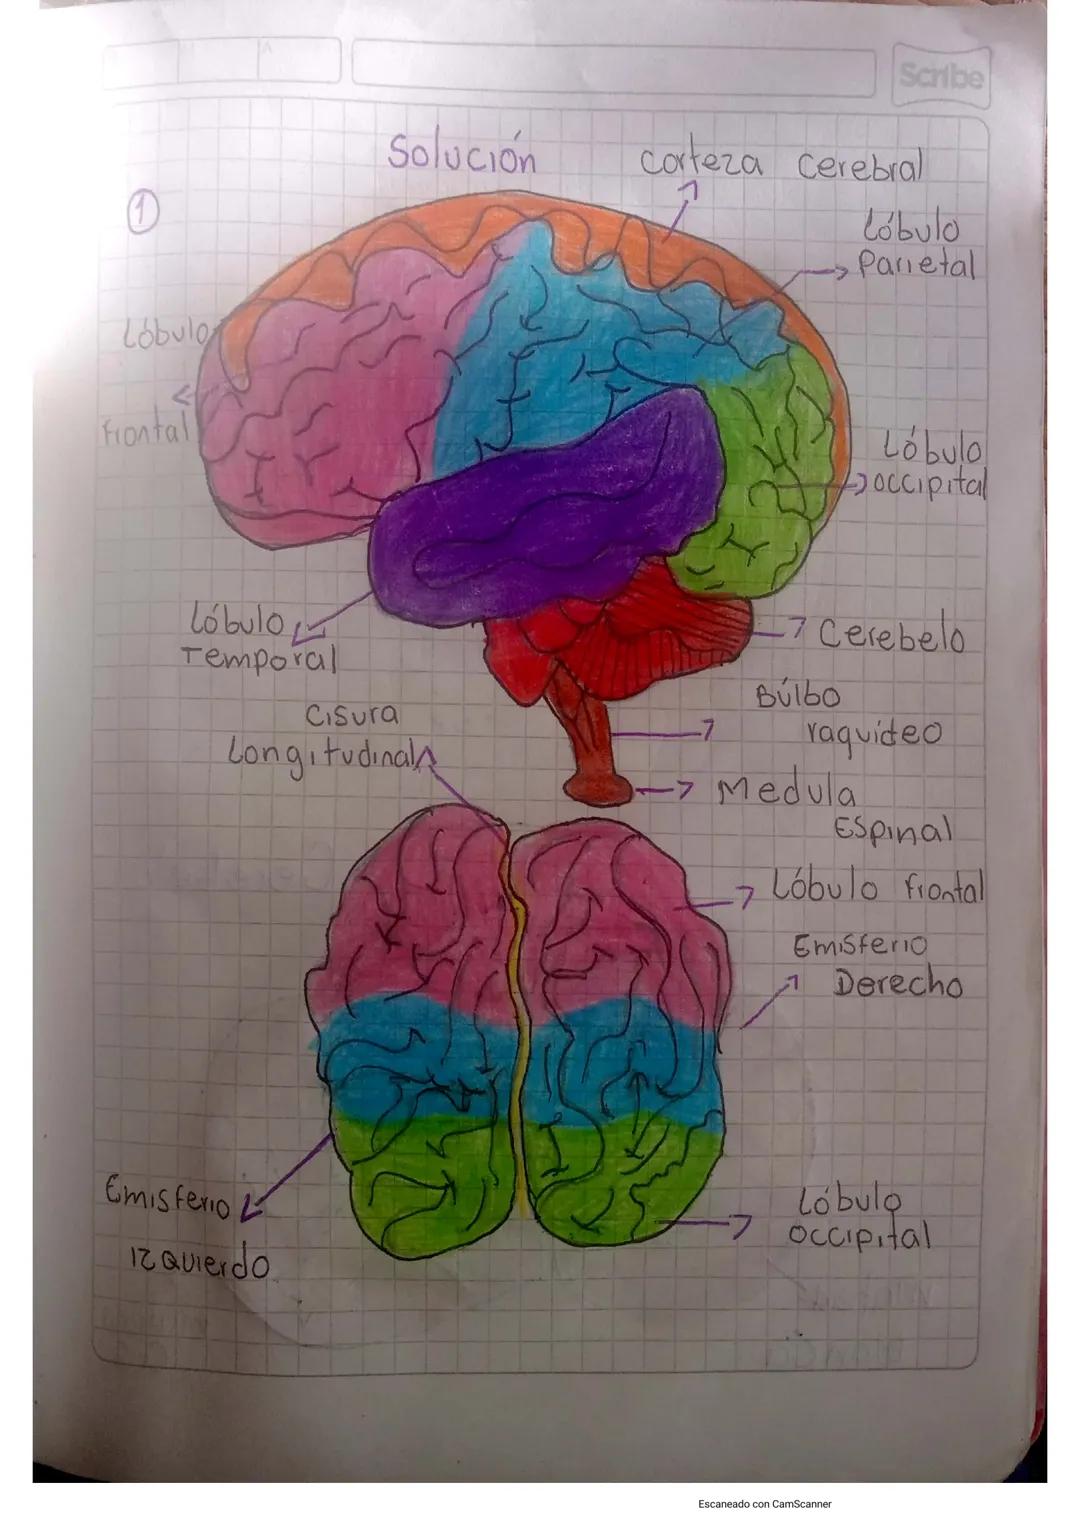 Scribe
Solución
corteza cerebral
1
Lóbulo
Parietal
Lóbulo
frontal
Lóbulo
occipital
Lóbulo
Temporal
Cerebelo
Búlbo
raquídeo
Cisura
Longitudinal
Medula
Espinal
Lóbulo frontal
Emisferio
Derecho
Emisferio
Izquierdo
Lóbulo
occipital
Escaneado con CamScanner